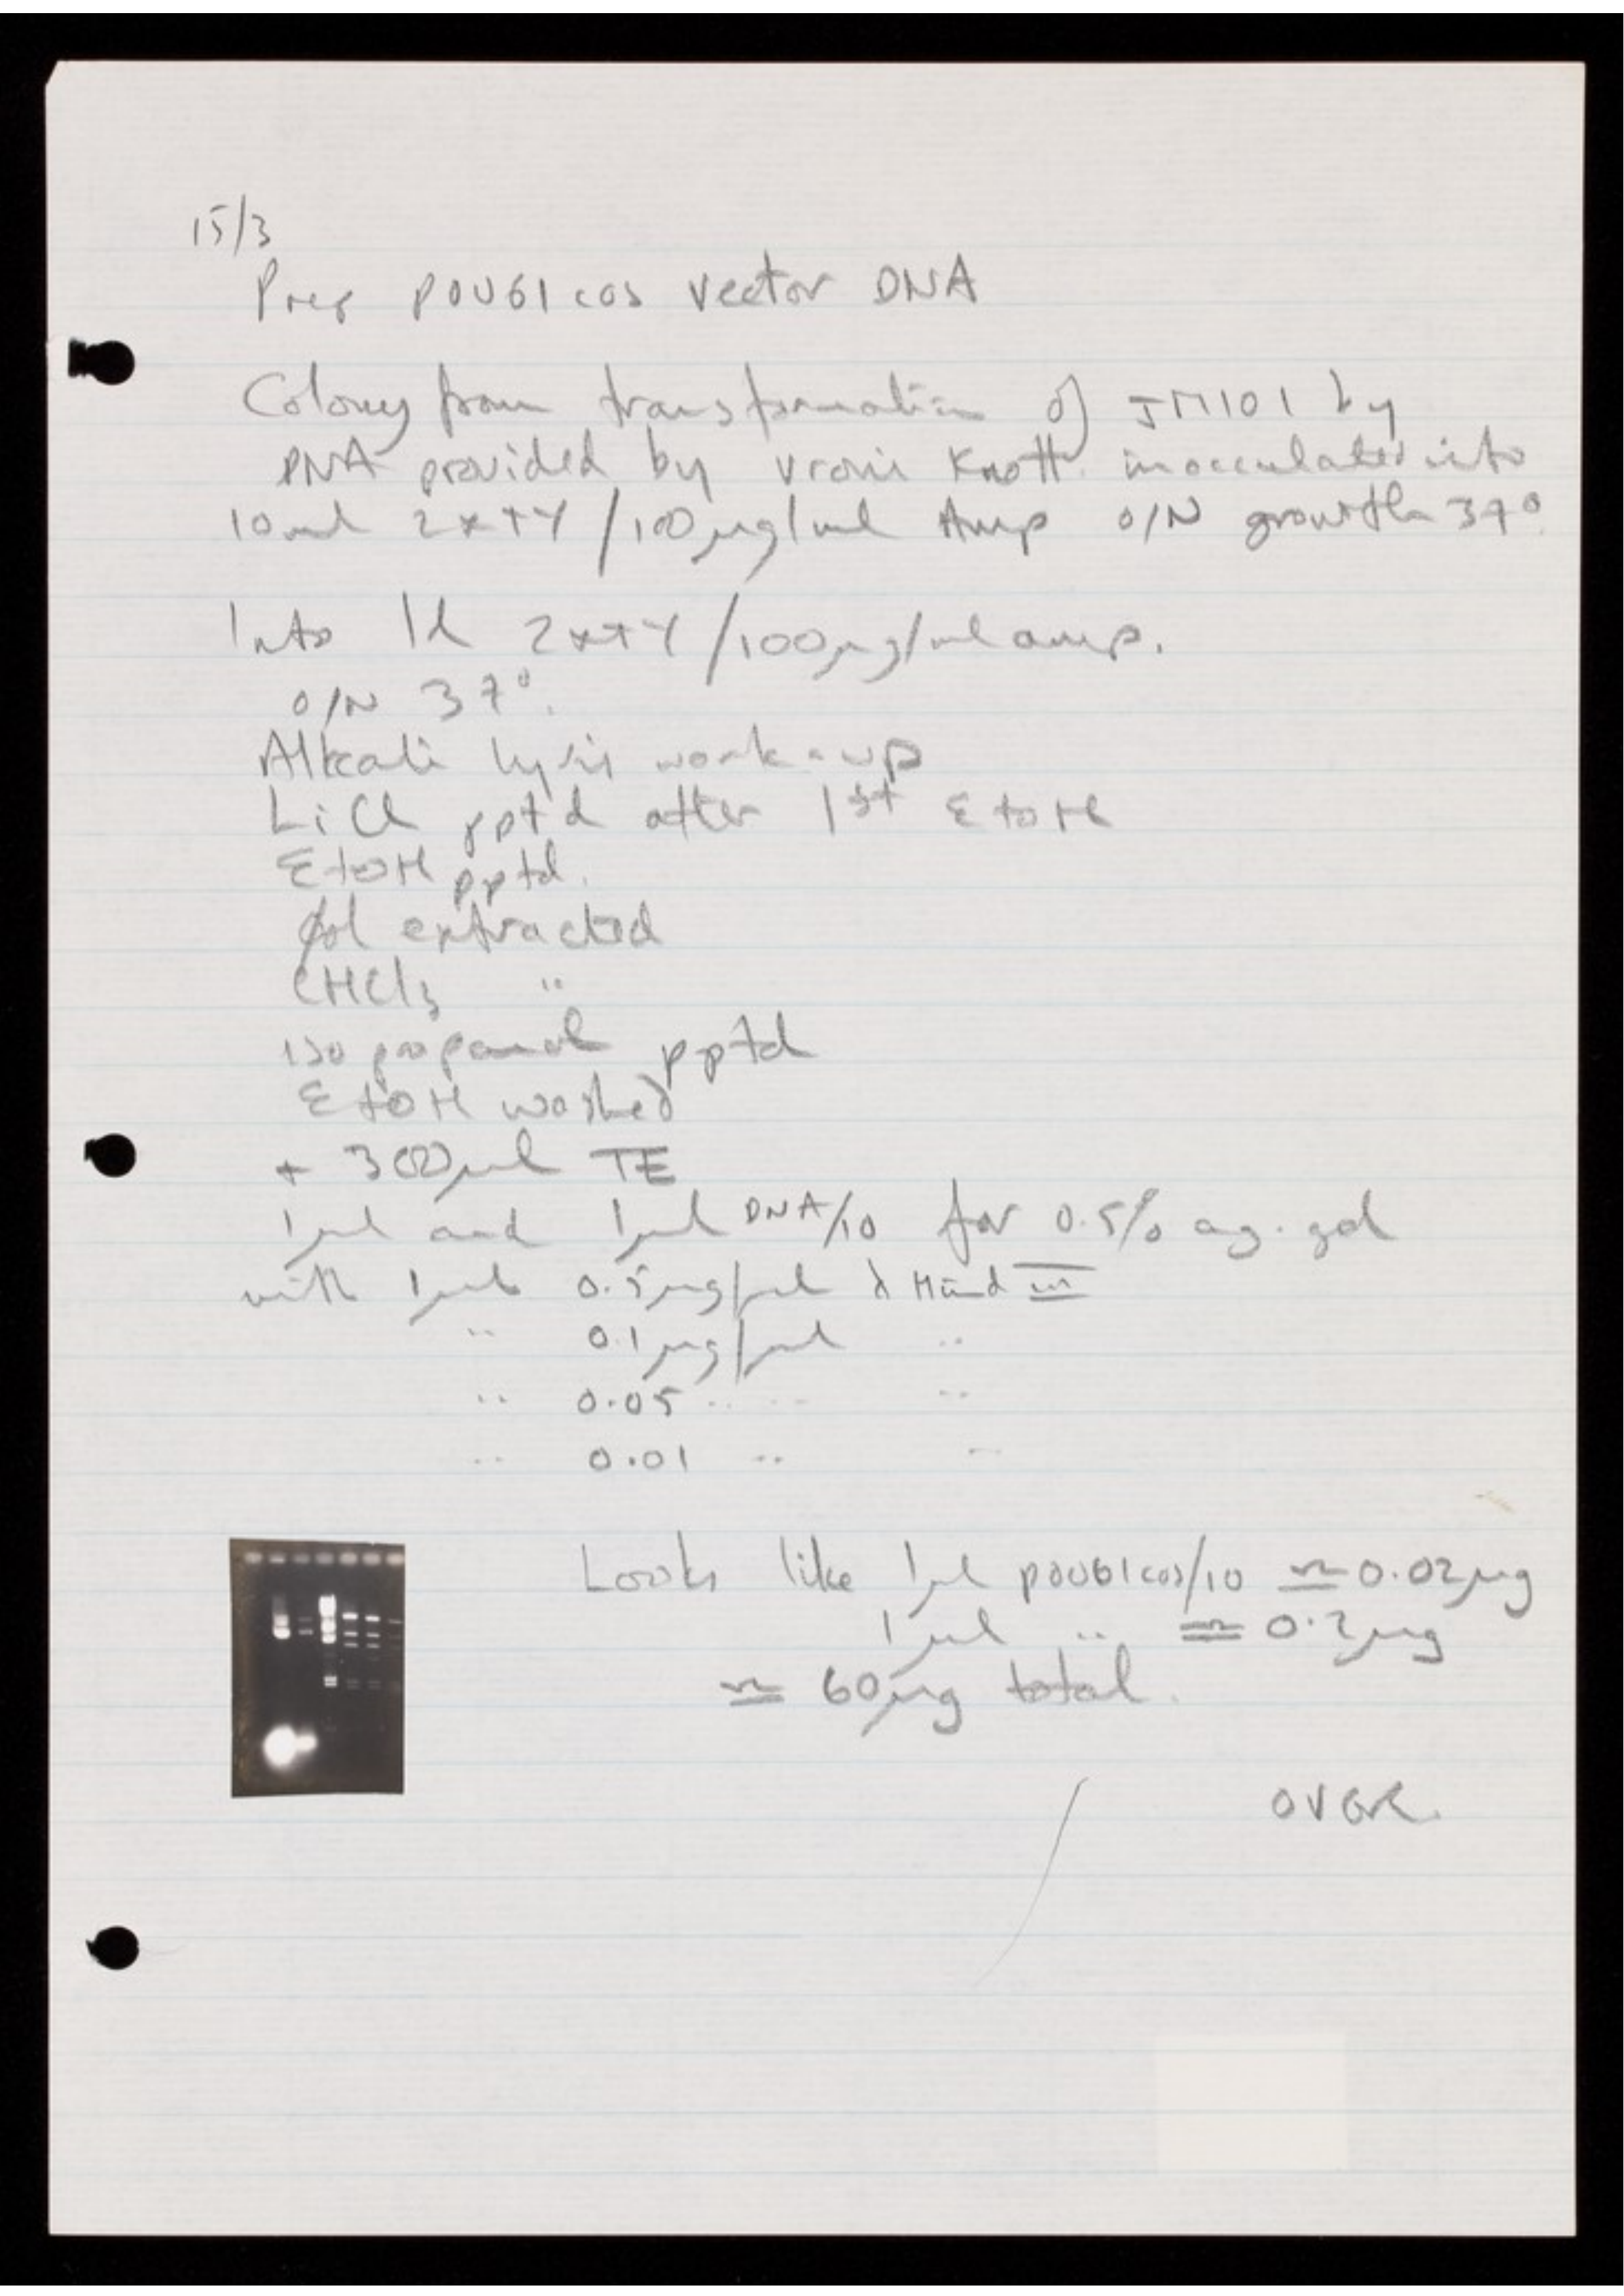 15/3
Prep pOU61cos vector DNA
Colony from transformation of JM101 by
DNA provided by Vroni Knott inocculated into
10ml 2xTY/100µg/ml Amp O/N growth 37°
Into 1l 2xTY/100µg/ml amp.
O/N 37°.
Alkali lysis work-up
LiCl pptd after 1st EtOH
EtOH pptd.
øol extracted
CHCl3 "
isopropanol pptd
EtOH washed
+ 300µl TE
1µl and 1µl DNA/10 for 0.5% ag. gel
with 1µl 0.5µg/µl λ Hind III
" 0.1µg/µl "
" 0.05 " " "
" 0.01 " "
Looks like 1µl pOU61cos/10 ≃ 0.02µg
1µl " ≃ 0.2µg
≃ 60µg total.
OVER